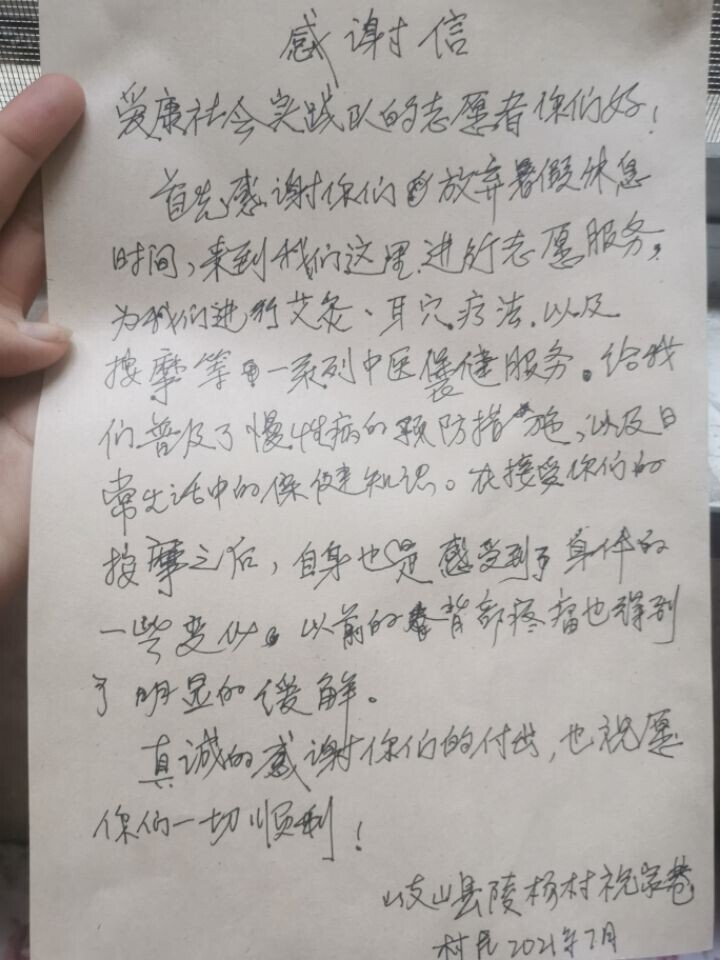 感谢信
爱康社会实践队的志愿者你们好！
首先感谢你们放弃暑假休息
时间，来到我们这里进行志愿服务，
为我们进行艾灸、耳穴疗法，以及
按摩等一系列中医保健服务。给我
们普及了慢性病的预防措施，以及日
常生活中的保健知识。在接受你们的
按摩之后，自身也是感受到了身体的
一些变化。以前的背部疼痛也得到
了明显的缓解。
真诚的感谢你们的付出，也祝愿
你们一切顺利！
岐山县陵杨村祝家巷
村民2021年7月